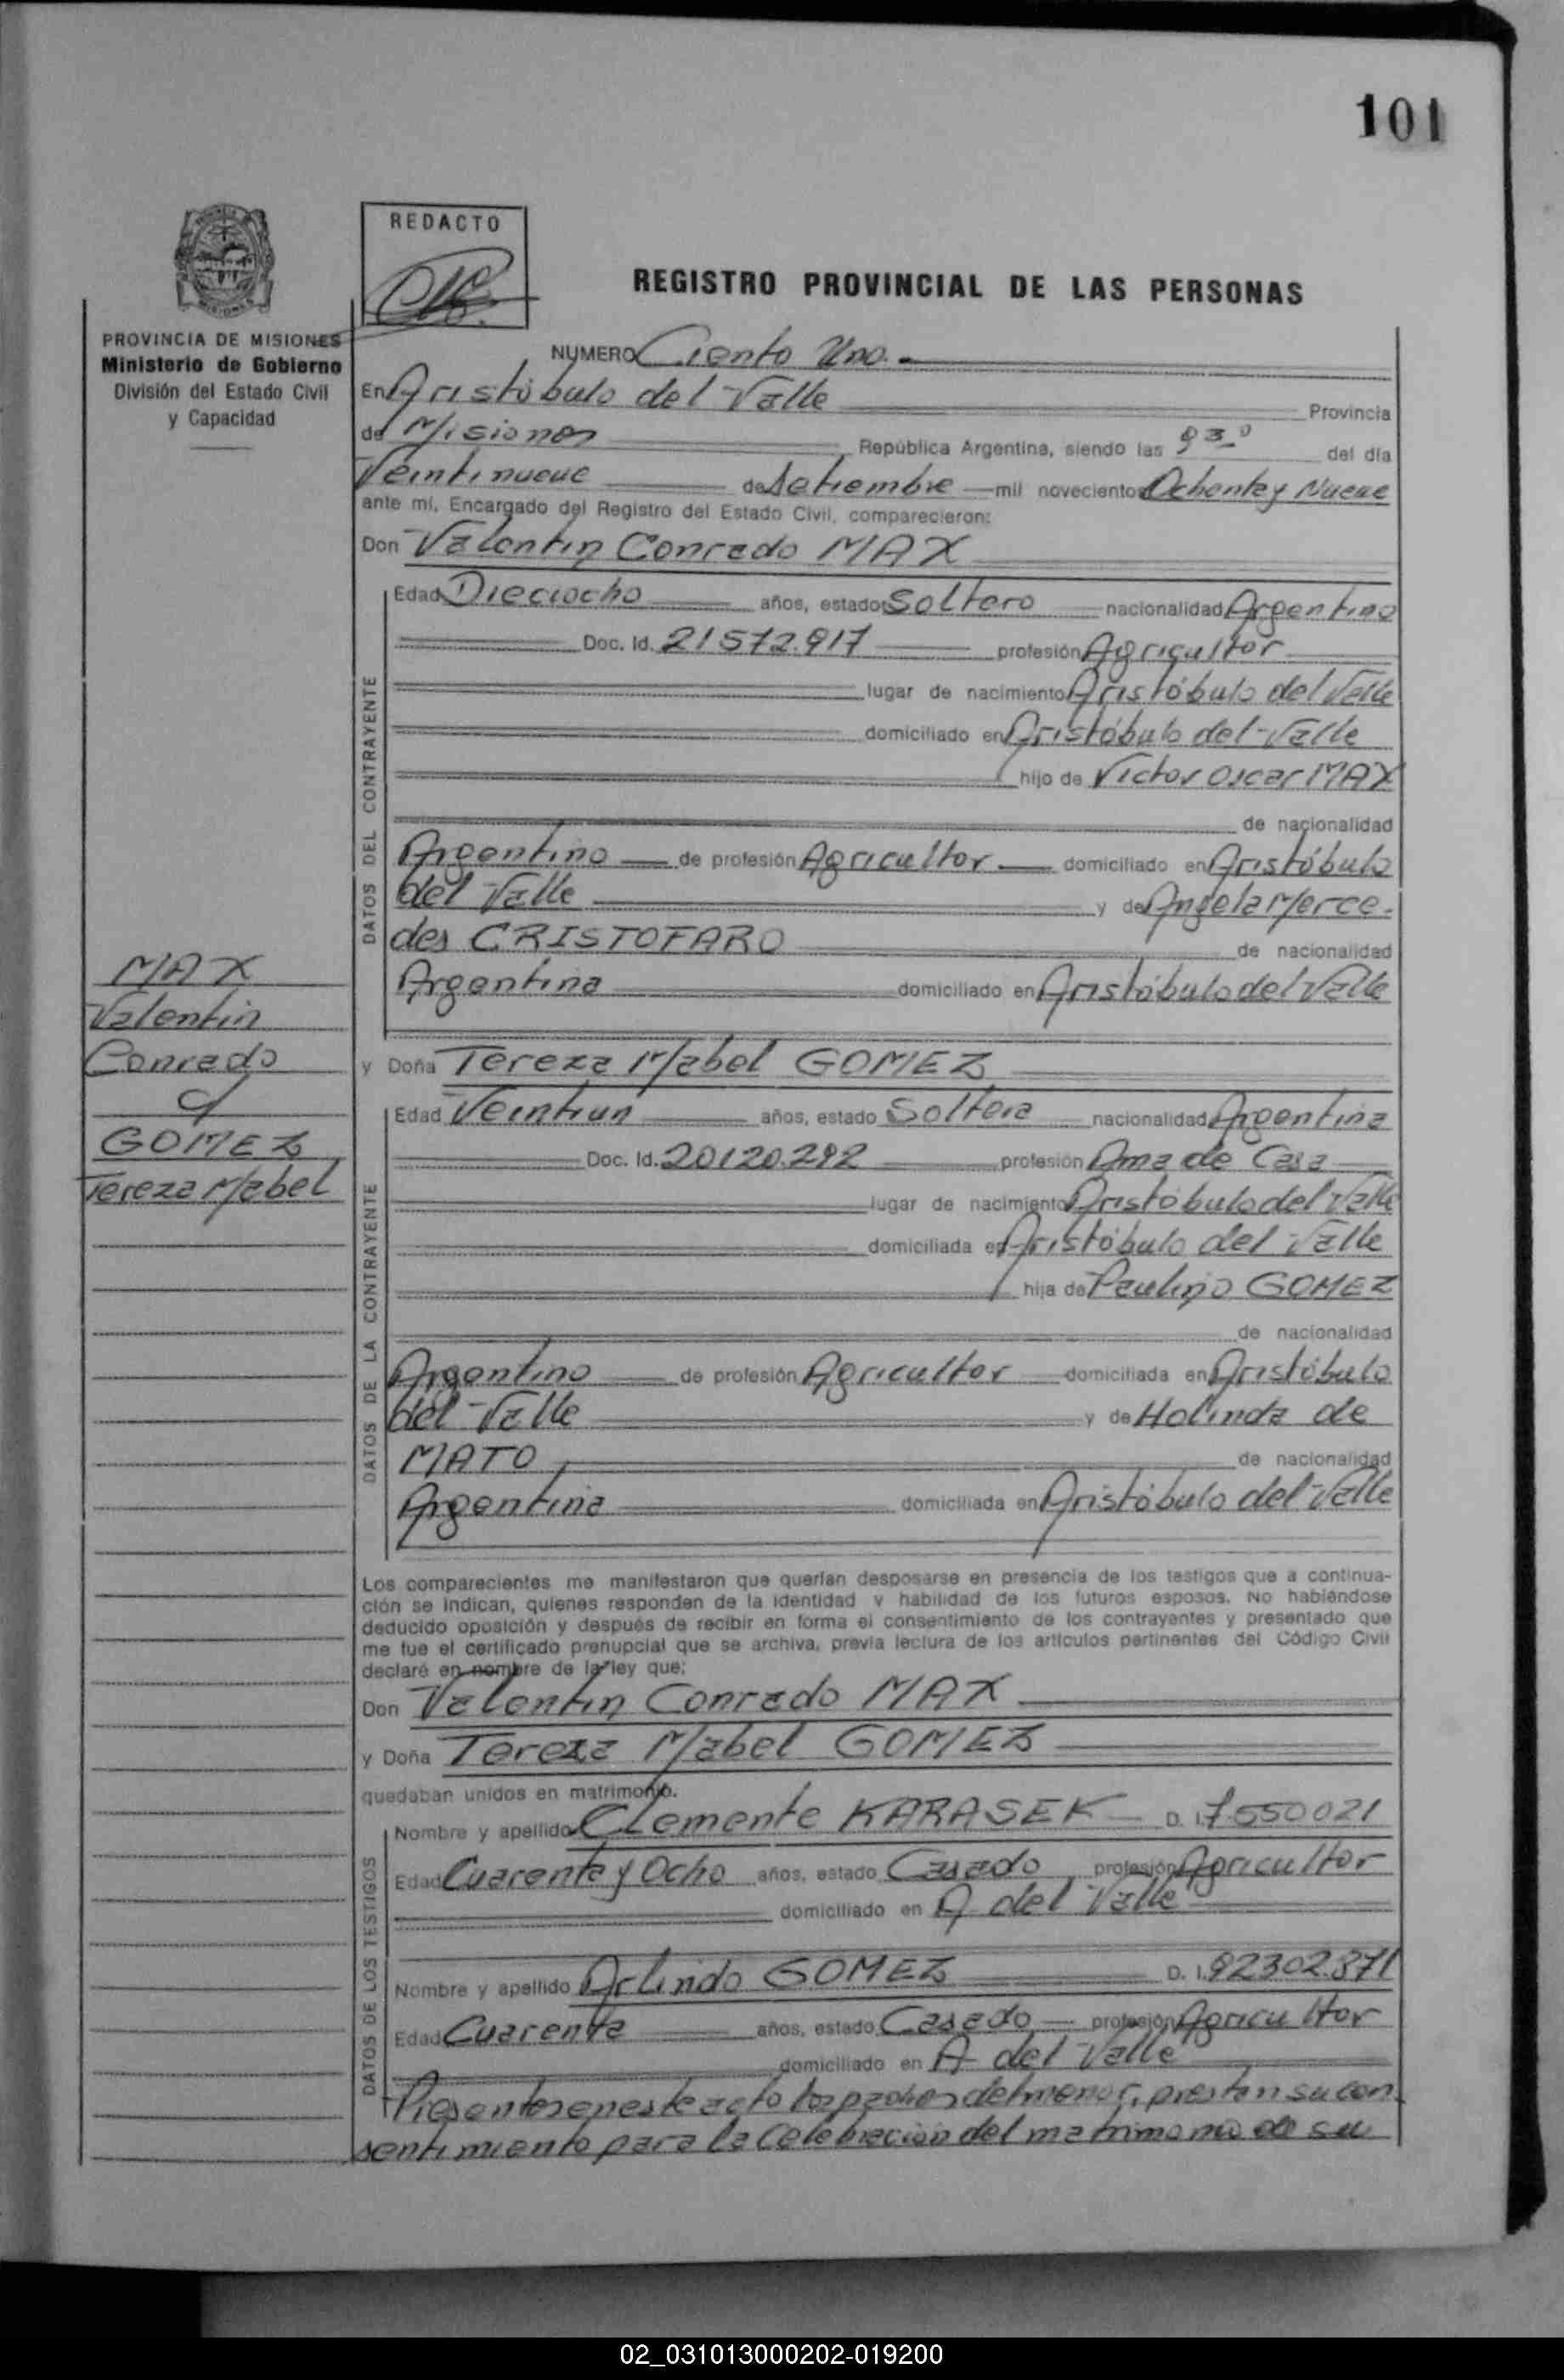 101
REDACTO
REGISTRO PROVINCIAL DE LAS PERSONAS
PROVINCIA DE MISIONES
Ministerio de Gobierno
División del Estado Civil
y Capacidad
NUMERO Ciento Uno.-
En Aristóbulo del Valle Provincia
de Misiones República Argentina, siendo las 930 del día
Veintinueve de Setiembre mil novecientos Ochenta y Nueve
ante mí, Encargado del Registro del Estado Civil, comparecieron:
Don Valentin Conrado MAX
Edad Dieciocho años, estado Soltero nacionalidad Argentino
Doc. Id. 21572.917 profesión Agricultor
lugar de nacimiento Aristóbulo del Valle
domiciliado en Aristóbulo del Valle
hijo de Victor Oscar MAX
de nacionalidad
Argentino de profesión Agricultor domiciliado en Aristóbulo
del Valle y de Angela Merce-
des CRISTOFARO de nacionalidad
Argentina domiciliado en Aristóbulo del Valle
DATOS DEL CONTRAYENTE
MAX
Valentin
Conrado
c/
GOMEZ
Tereza Mabel
y Doña Tereza Mabel GOMEZ
Edad Veintiun años, estado Soltera nacionalidad Argentina
Doc. Id. 20120.292 profesión Ama de Casa
lugar de nacimiento Aristóbulo del Valle
domiciliada en Aristóbulo del Valle
hija de Paulino GOMEZ
de nacionalidad
Argentino de profesión Agricultor domiciliada en Aristóbulo
del Valle y de Holinda de
MATO de nacionalidad
Argentina domiciliada en Aristóbulo del Valle
DATOS DE LA CONTRAYENTE
Los comparecientes me manifestaron que querían desposarse en presencia de los testigos que a continua-
ción se indican, quienes responden de la identidad y habilidad de los futuros esposos. No habiéndose
deducido oposición y después de recibir en forma el consentimiento de los contrayentes y presentado que
me fue el certificado prenupcial que se archiva, previa lectura de los artículos pertinentes del Código Civil
declaré en nombre de la ley que:
Don Valentin Conrado MAX
y Doña Tereza Mabel GOMEZ
quedaban unidos en matrimonio.
Nombre y apellido Clemente KARASEK D. I. 7.550021
Edad Cuarenta y Ocho años, estado Casado profesión Agricultor
domiciliado en A. del Valle
Nombre y apellido Arlindo GOMEZ D. I. 92302.871
Edad Cuarenta años, estado Casado profesión Agricultor
domiciliado en A. del Valle
DATOS DE LOS TESTIGOS
Presentes en este acto los padres del menor, prestan su con
sentimiento para la celebración del matrimonio de su
02_031013000202-019200